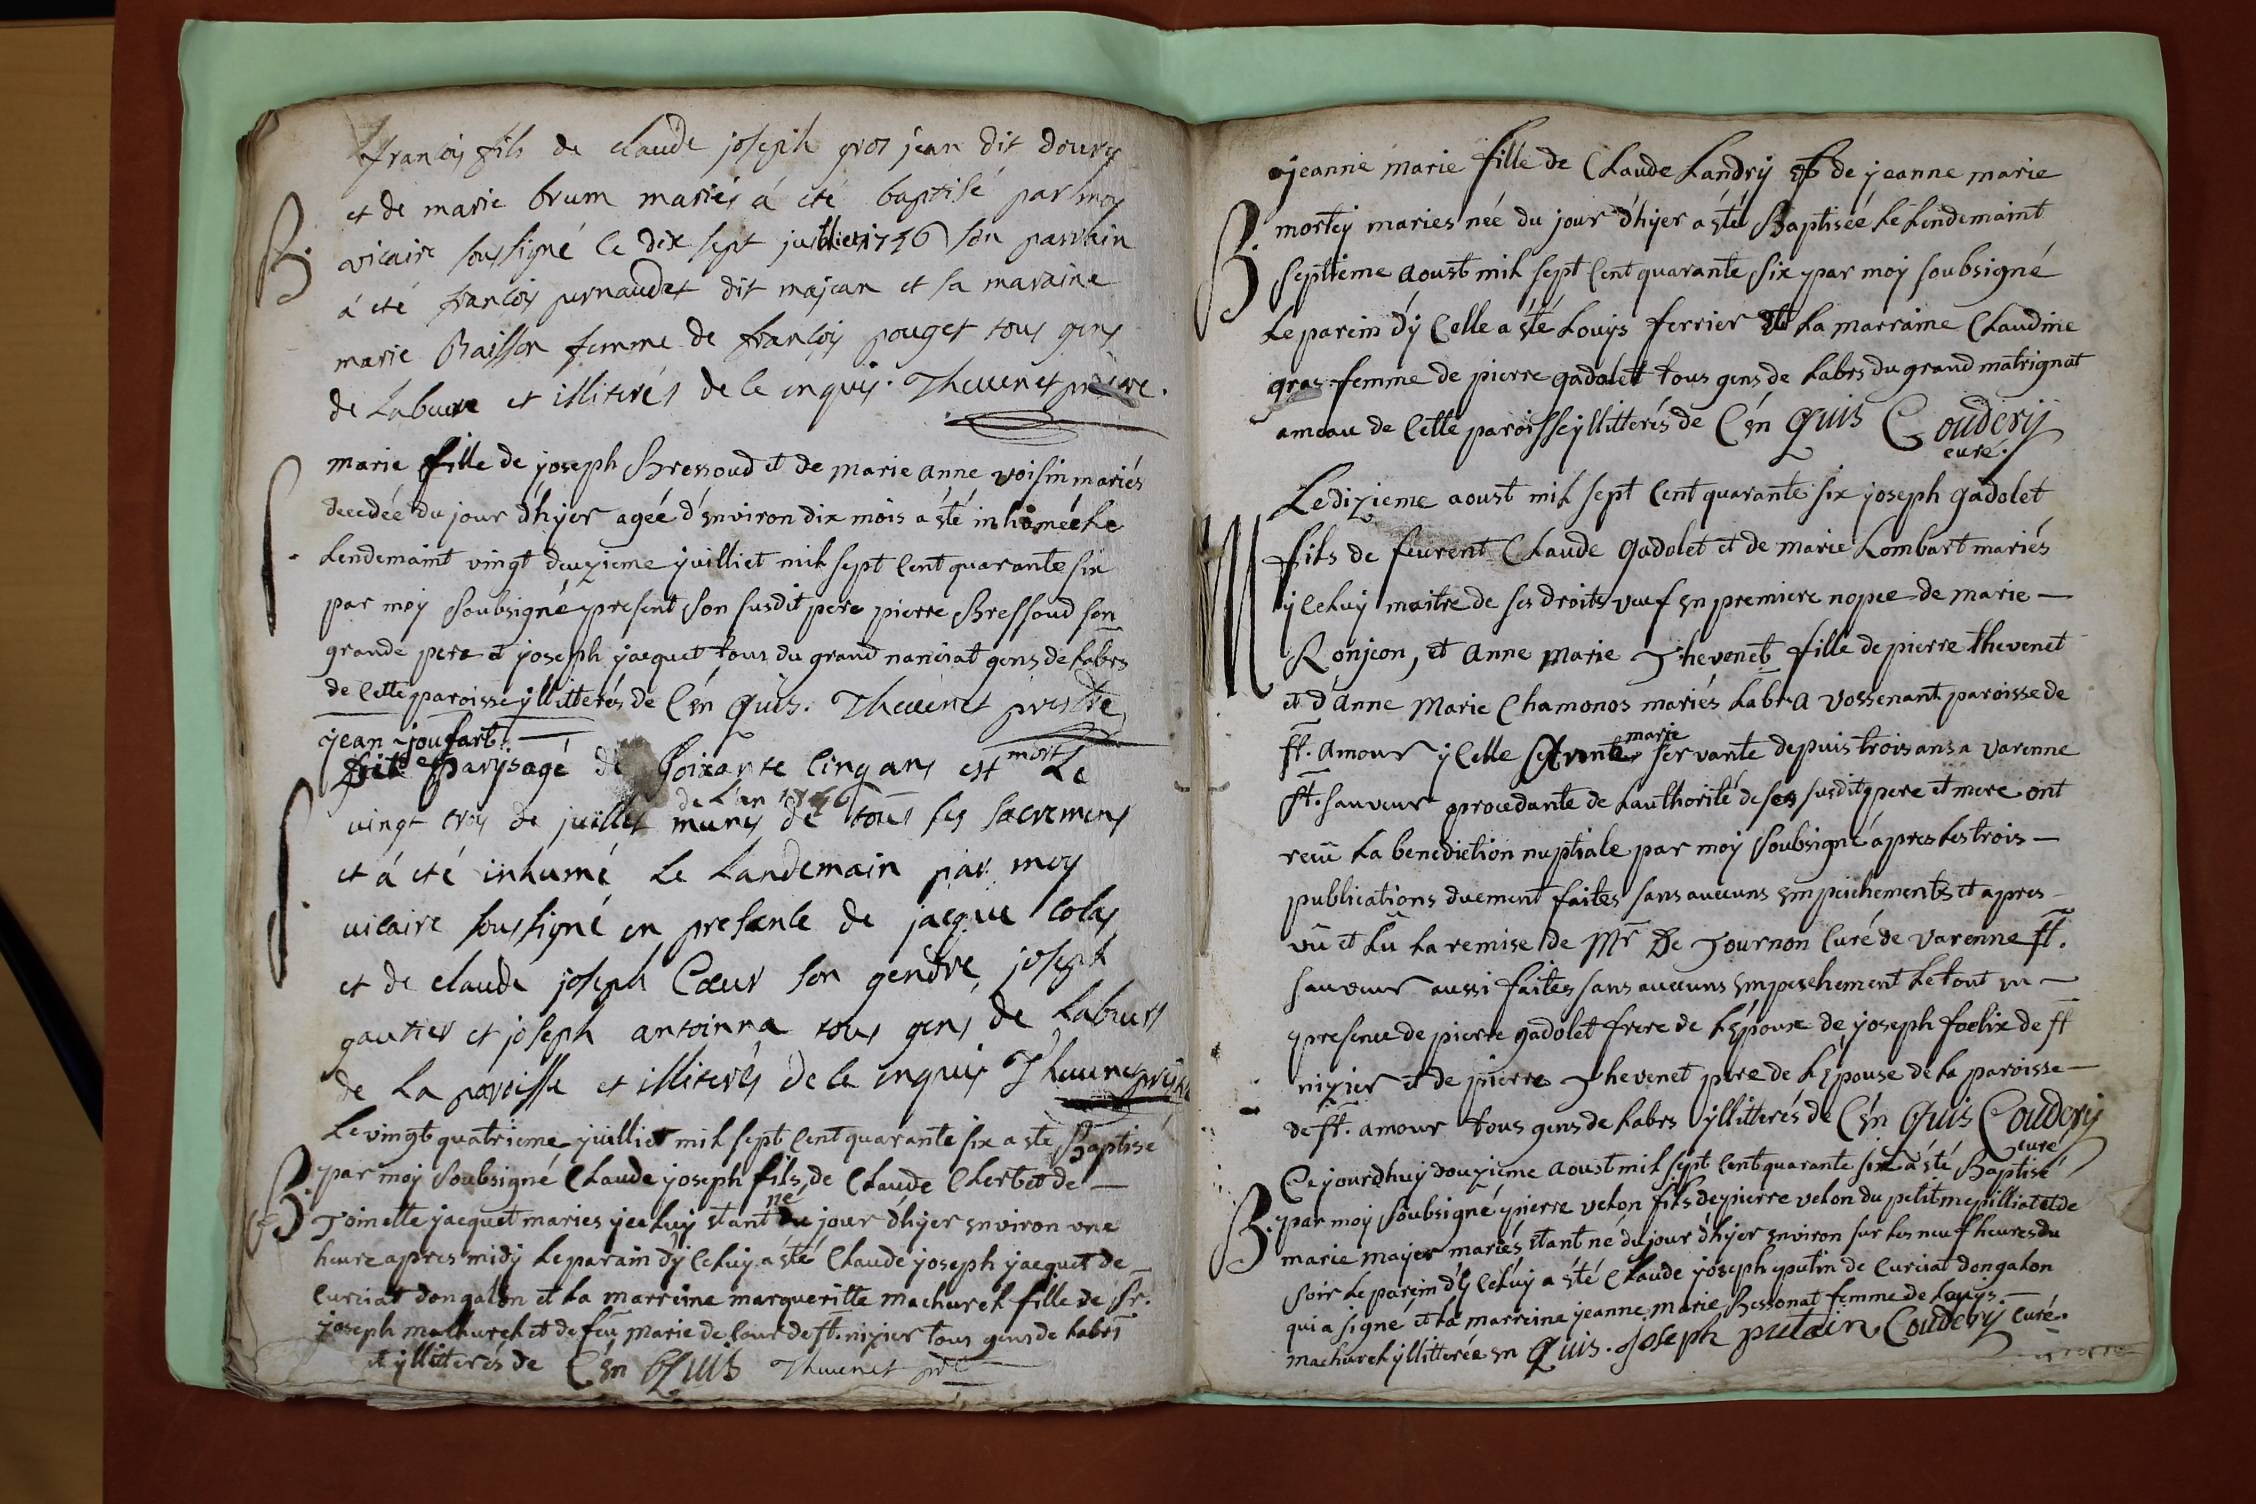 françois fils de claude joseph gros jean dit doury
et de marie brum mariés á été baptisé par moy
B. vicaire soussigné le dix sept juilliet 1746 son parrain
á été françois pernaudet dit majean et sa maraine
marie Baisson femme de françois pouget tous gens
de Labeure et illiterés de ce enquis. Thevenet pretre.
marie fille de joseph Bressoud et de marie anne voisin mariés
decedée du jour d'hyer ageé d'environ dix mois a été inhumeé Le
S. Lendemaint vingt deuzieme juilliet mil sept Cent quarante six
par moy soubsigné present son susdit pere pierre Bressoud son
grande pere et joseph jacquet tous du grand nanciat gens de Labrs
de Cette paroisse yllitterés de C'en Quis. Thevenet prestre
jean joufart
dit parys agé de soixante cinq ans est mort Le
vingt trois de juillet de L'an 1746 munis de tous ses sacremens
S. et á été inhumé Le Landemain par moy
vicaire soussigné en presence de jacque colas
et de claude joseph Cœur son gendre, joseph
gautier et joseph antoinna tous gens de Labeurs
de La paroisse et illiterés de ce enquis Thevenet prestre
Le vingt quatrieme juilliet mil sept Cent quarante six a été Baptisé
B. par moy soubsigné Claude joseph fils de Claude Clerbet de
Toinette jacquet maries yceluy etant né du jour d'hyer environ une
heure apres midy Le parain d'yceluy a été Claude joseph jacquet de
Curciat dongalon et La marreine margueritte machurek fille de Sr.
joseph machurek et de feu Marie de Cour de st. nizier tous gens de Labrs
et yllitterés de C'en Quis Thevenet ptre
jeanne marie fille de Claude Landry et de jeanne marie
B. mortey maries née du jour d'hyer a été Baptiseé Le Lendemaint
septieme aoust mil sept Cent quarante six par moy soubsigné
Le parein d'y Celle a été Louys ferrier et La marraine Claudine
gras femme de pierre gadolet tous gens de Labrs du grand matrignat
ameau de Cette paroisse yllitterés de C'en Quis Coudery
curé.
Le dizieme aoust mil sept Cent quarante six joseph gadolet
M fils de feu Claude gadolet et de marie Lombart mariés
yceluy maitre de ses droits veuf en premiere nopce de marie
Ronjeon, et anne Marie Thevenet fille de pierre thevenet
et d'anne Marie Chamonos mariés Labrs a vossenant paroisse de
st. amour ycelle marie servante depuis trois ans a varenne
st. sauveur procedante de Lauthorité de ses susdits pere et mere ont
reçu La benediction nuptiale par moy soubsigné apres Les trois
publications duement faites sans aucuns empeichements et apres
vû et Lû La remise de Mr De Tournon Curé de varenne st.
sauveur aussi faites sans aucuns empeschement Le tout en
presence de pierre gadolet frere de L'epoux de joseph foelix de st
nizier et de pierre Thevenet pere de L'epouse de La paroisse
de st. amour tous gens de Labrs yllitterés de C'en Quis Coudery
curé
Ce jourd'huy douzieme aoust mil sept Cent quarante six a été Baptisé
B. par moy soubsigné pierre velon fils de pierre velon du petit mepilliat et de
marie mayer mariés etant né du jour d'hyer environ sur Les neuf heures du
soir Le parein d'yceluy a été Claude joseph putin de Curciat dongalon
qui a signé et La marreine jeanne marie Bessonat femme de Louys
machurek yllitterée en Quis. joseph putain Coudery curé.